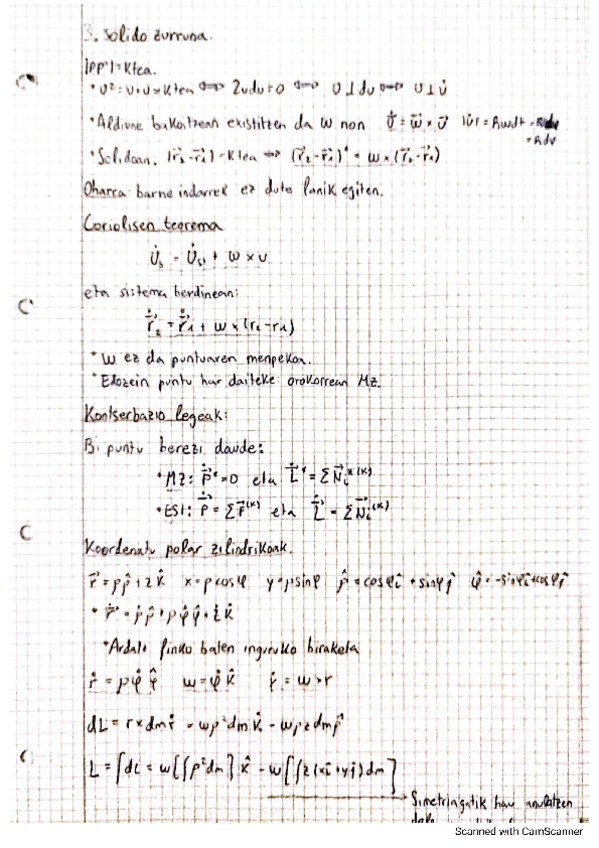 3. Solido zurruna.
|PP'|=Ktea.
• U²=U·U=Ktea ⟺ 2UdU=0 ⟺ U⊥dU ⟺ U⊥U̇
• Aldiune bakoitzean existitzen da w non U̇ = w⃗ × U⃗ |U̇| = Awdt =
= Adv
• Solidoan, |r⃗₂-r⃗₁|=Ktea ⇒ (r⃗₂-r⃗₁)˙ = w × (r⃗₂-r⃗₁)
Oharra: barne indarrek ez dute lanik egiten.
Coriolisen teorema
U̇ₛ = U̇ₛ' + w × U
eta sistema berdinean:
ṙ₂ = ṙ₁ + w × (r₂-r₁)
• w ez da puntuaren menpekoa.
• Edozein puntu har daiteke orokorrean MZ.
Kontserbazio legeak:
Bi puntu berezi daude:
• MZ: Ṗ*=0 eta L̇* = ΣN⃗ᵢ*⁽ᴷ⁾
• ESI: Ṗ = ΣF⃗⁽ᴷ⁾ eta L̇ = ΣN⃗ᵢ⁽ᴷ⁾
Koordenatu polar zilindrikoak.
r⃗ = ρρ̂ + zk̂ x=ρcosφ y=ρsinφ ρ̂ = cosφî + sinφĵ φ̂ = -sinφî+cosφĵ
• ṙ = ρ̇ρ̂ + ρφ̇φ̂ + żk̂
• Ardatz finko baten inguruko biraketa
ṙ = ρφ̇φ̂ w = φ̇k̂ ṙ = w × r
dL = r×dmṙ = wρ²dm k̂ - wρzdmρ̂
L = ∫dL = w[∫ρ²dm] k̂ - w[∫z(xî+yĵ)dm]
→ Simetriagatik hau anulatzen
Scanned with CamScanner